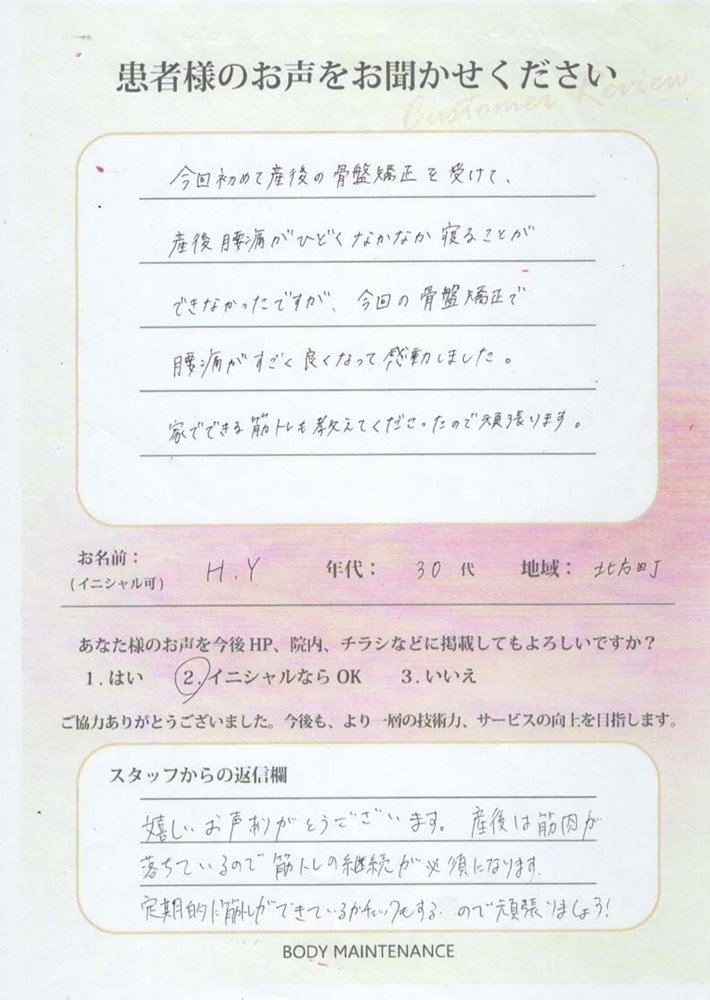 患者様のお声をお聞かせください
Customer Review
今回初めて産後の骨盤矯正を受けて、
産後腰痛がひどくなかなか寝ることが
できなかったですが、今回の骨盤矯正で
腰痛がすごく良くなって感動しました。
家でできる筋トレも教えてくださったので頑張ります。
お名前： H.Y 年代： 30代 地域： 北方町
(イニシャル可)
あなた様のお声を今後HP、院内、チラシなどに掲載してもよろしいですか？
1.はい 2.イニシャルならOK 3.いいえ
ご協力ありがとうございました。今後も、より一層の技術力、サービスの向上を目指します。
スタッフからの返信欄
嬉しいお声ありがとうございます。産後は筋肉が
落ちているので筋トレの継続が必須になります.
定期的に筋トレができているかチェックもするので頑張りましょう!
BODY MAINTENANCE